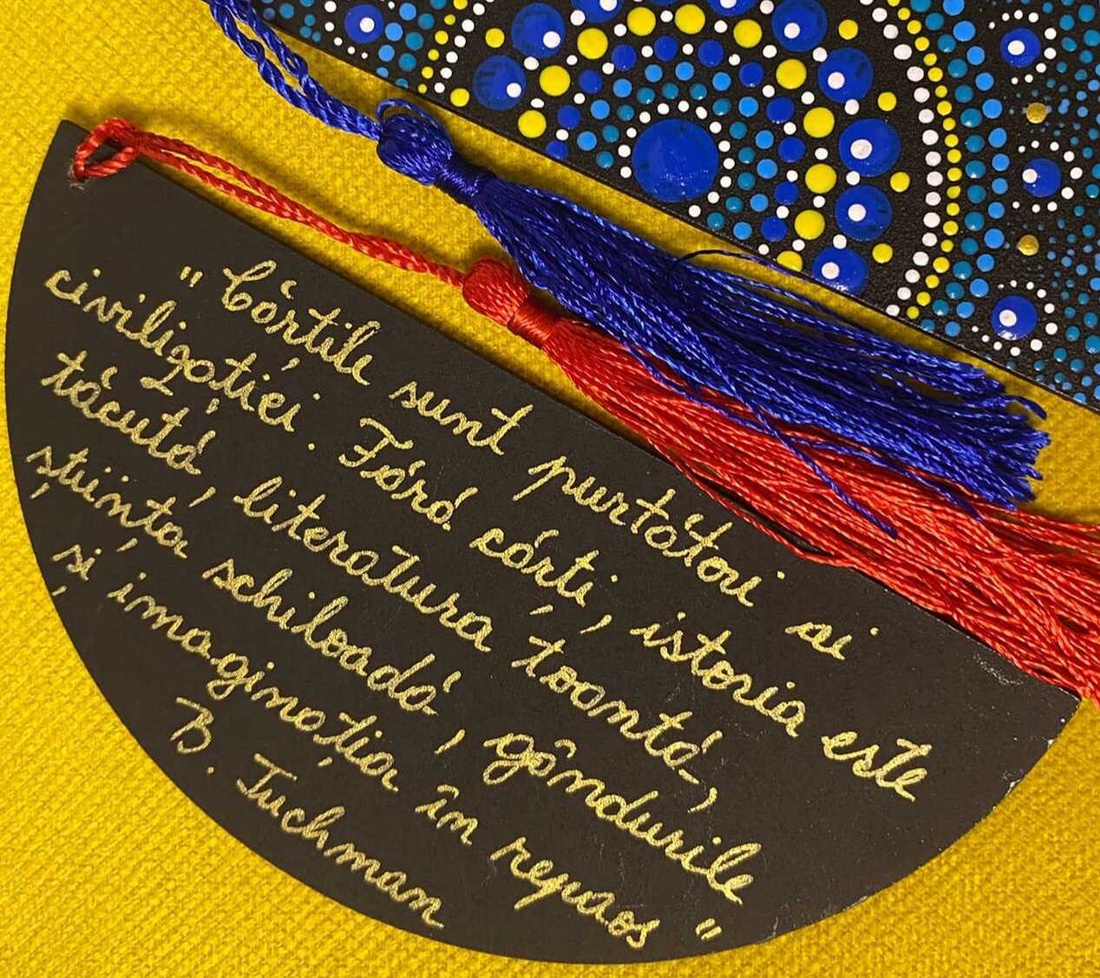 "Cărțile sunt purtători ai
civilizației. Fără cărți, istoria este
tăcută, literatura toantă,
știința schiloadă, gândurile
și imaginația în repaos"
B. Tuchmam